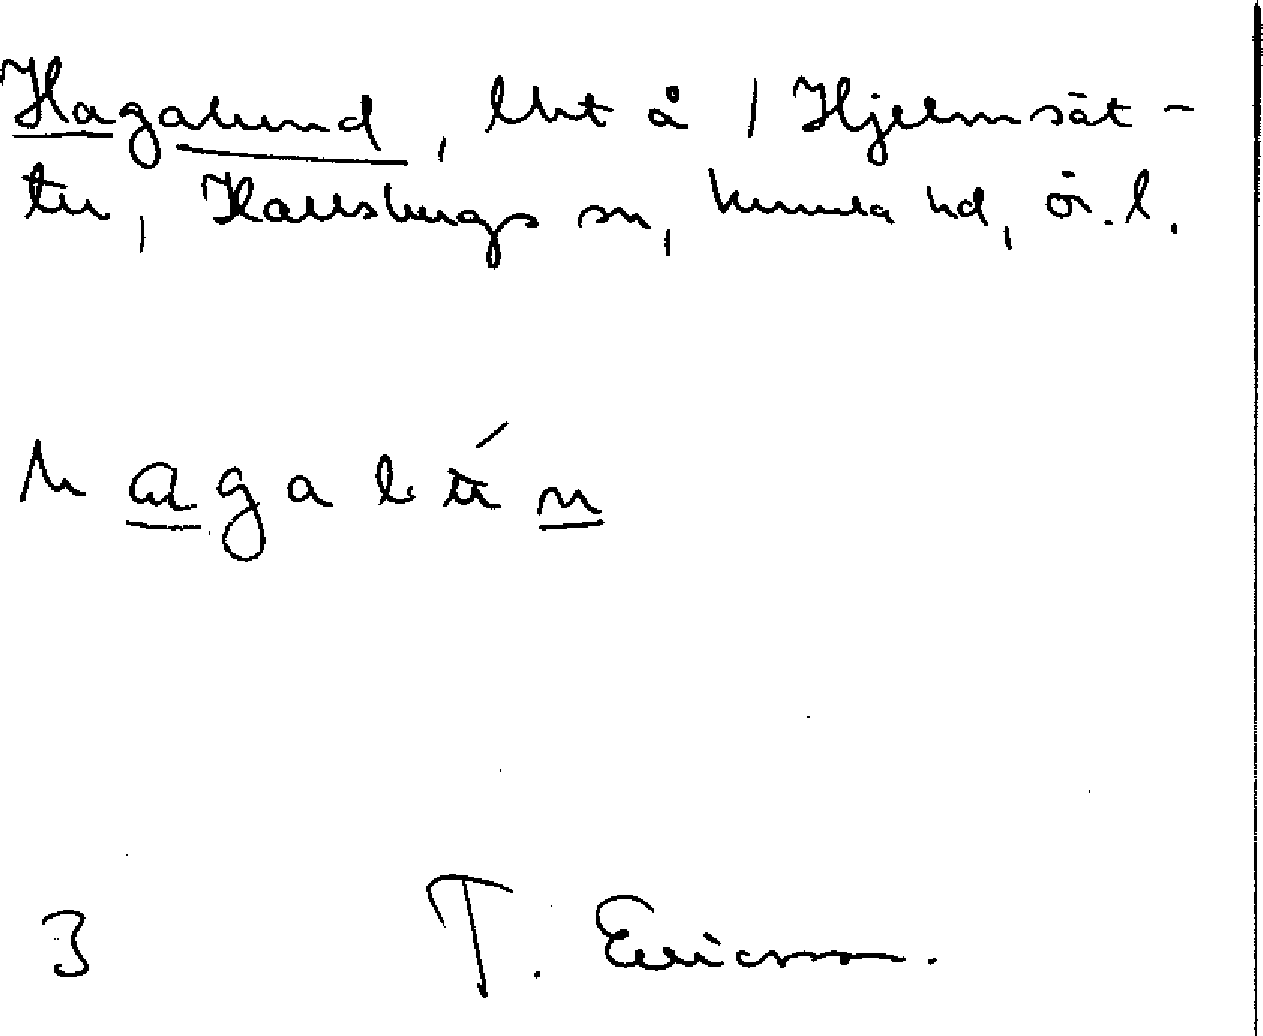 Hagalund, lht å 1 Hjelmsät-
ter, Hallsbergs sn, Kumla hd, ör. l.
h a g a l ú n
3 T. Ericsson.